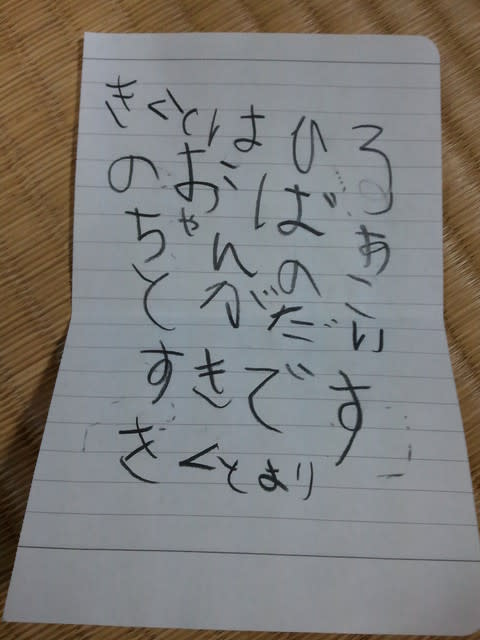 きくとはひろ
のおばあ
ちゃんのこ
とがだい
すきです
きくとより